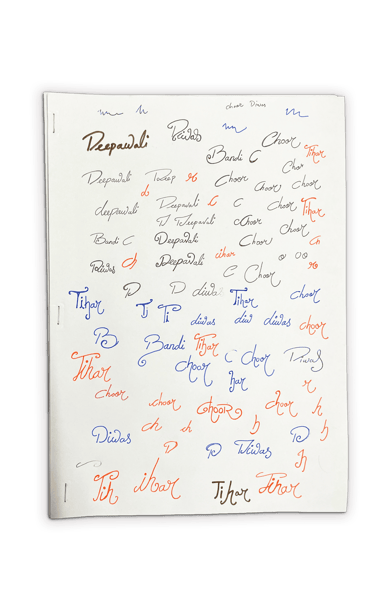 choor Diwas
Deepawali Diwas Choor
Bandi C Tihar
Choor
Deepawali Choor Choor Choor
deepawali Deepawali C Choor Tihar
Deepawali C choor Choor
Bandi C Deepawali Choor Ch
Diwas ch Deepawali ihar
C Choor
D D diwa Tihar choor
Tihar Ti Ti diwas diw diwas choor
B Bandi Tihar
Tihar choor C choor Diwas
har r
choor choor choor choor h
ch ch h
Diwas D D Diwas D
h
Tih ihar Tihar Tihar